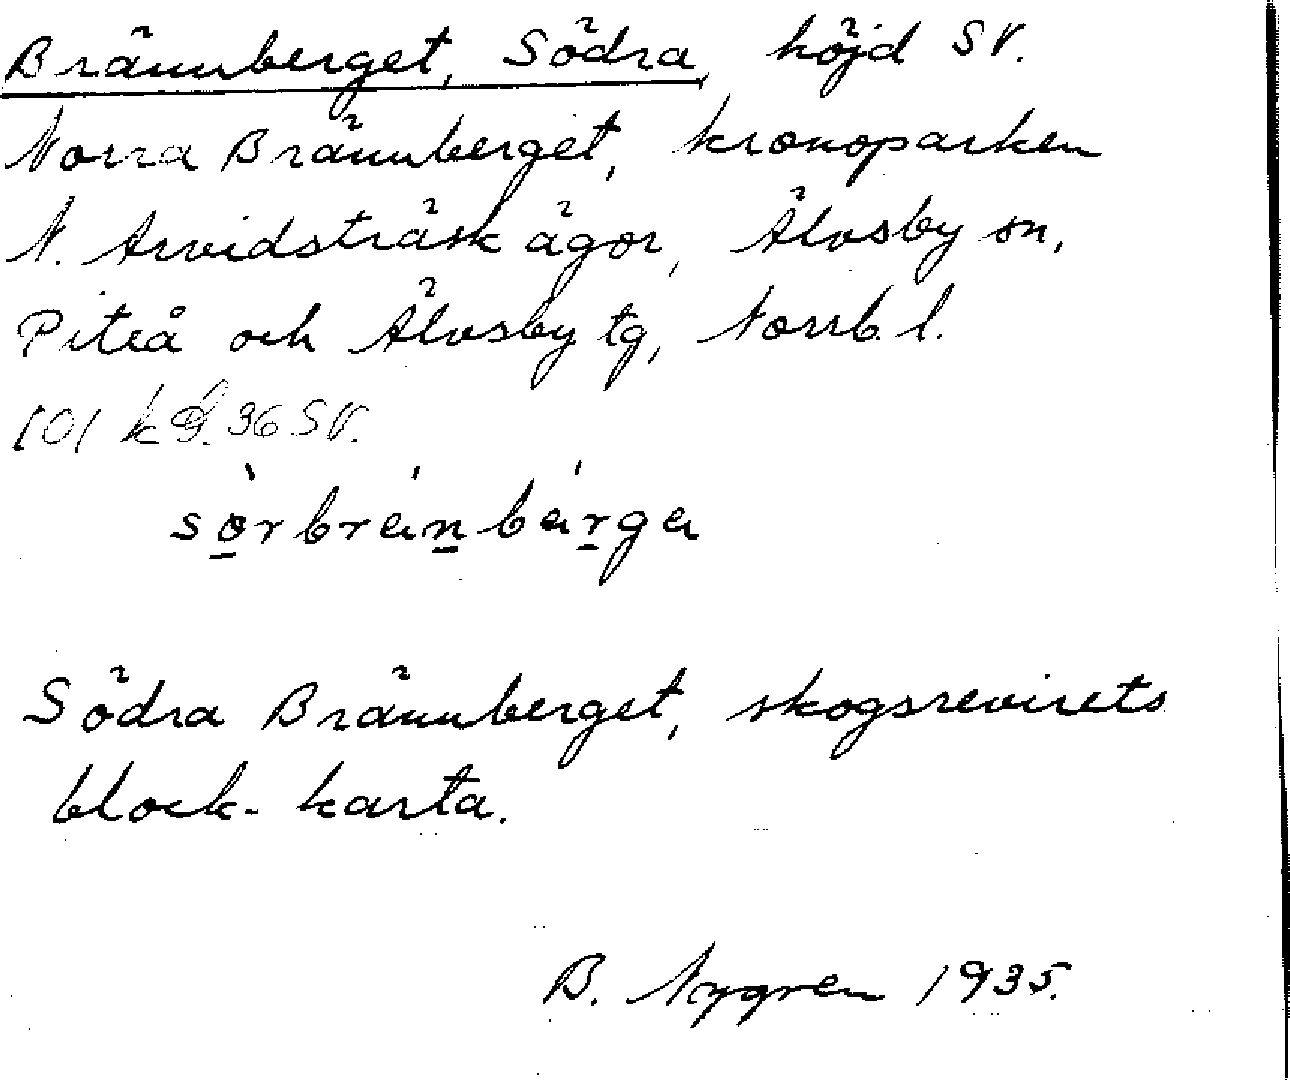 Brännberget, Södra, höjd SV.
Norra Brännberget, kronoparken
N. Arvidsträsk ägor, Älvsby sn,
Piteå och Älvsby tg, Norrb. l.
101 k 36 SV.
sörbränbärga
Södra Brännberget, skogsrevirets
block-karta.
B. Nygren 1935.